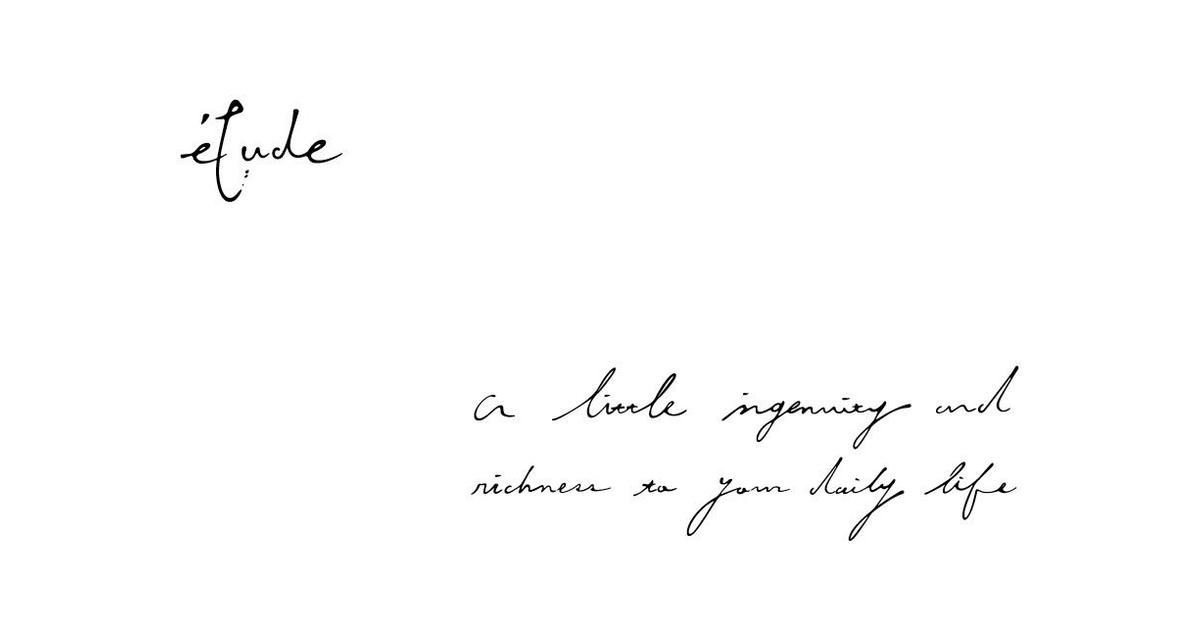 étude
a little ingenuity and
richness to your daily life